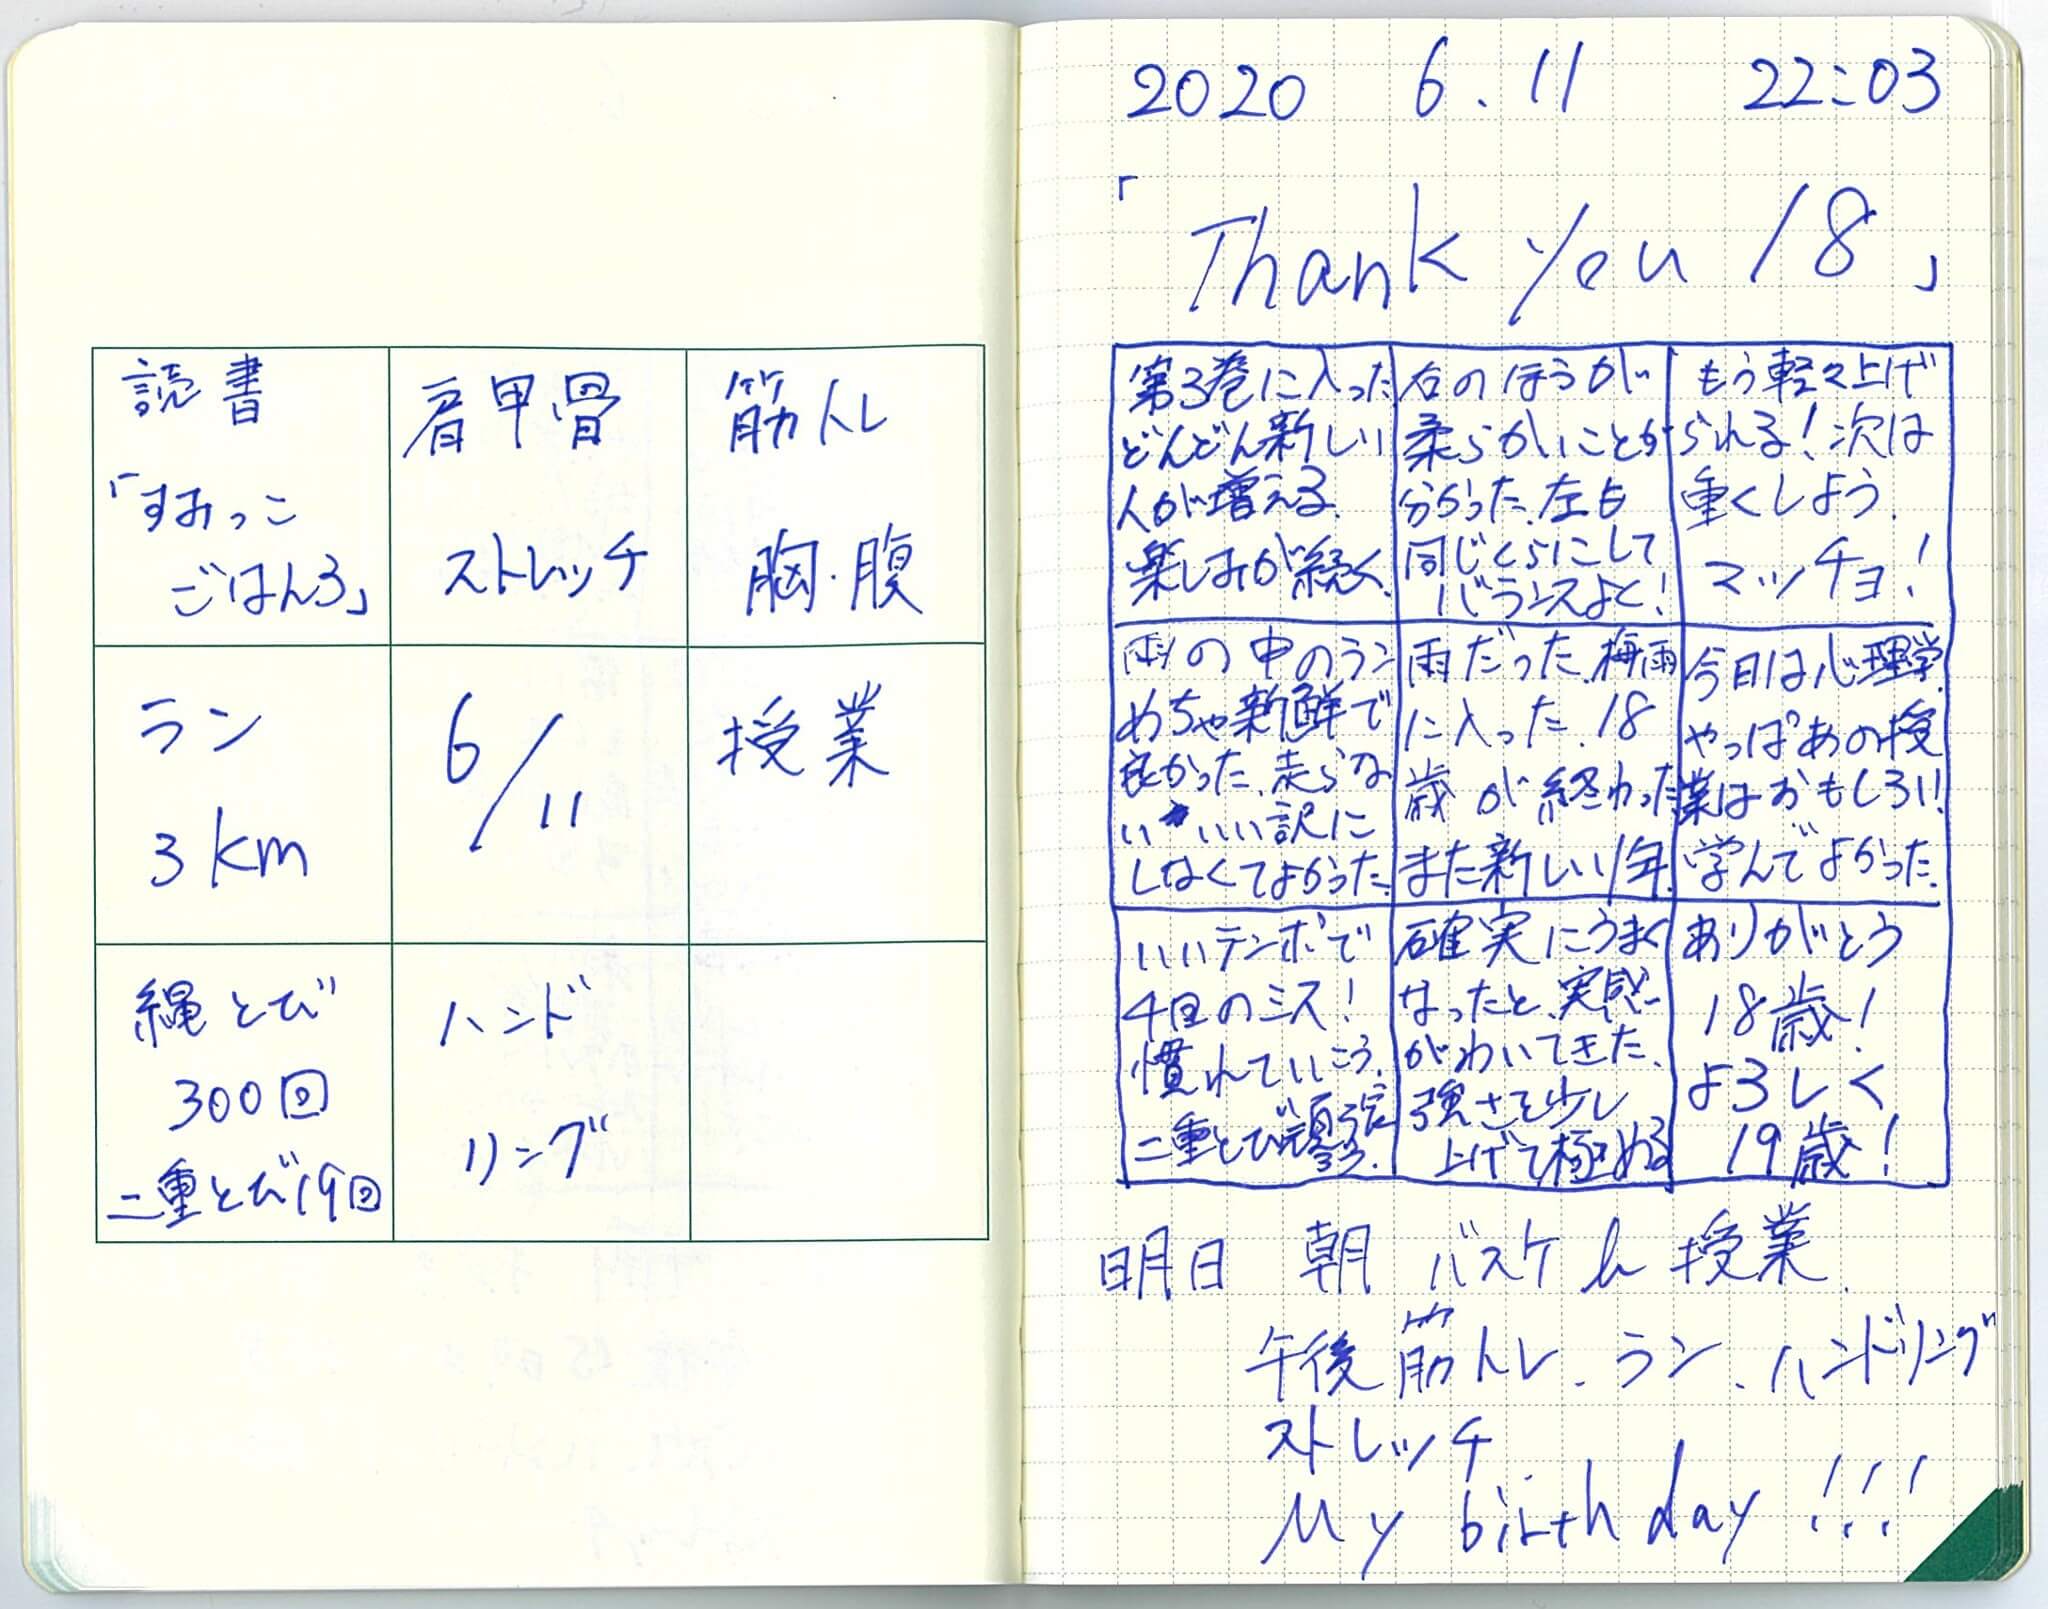 読書
「すみっこ
ごはん3」
肩甲骨
ストレッチ
筋トレ
胸・腹
ラン
3km
6/11
授業
縄とび
300回
二重とび19回
ハンド
リング
2020 6.11 22:03
「Thank you 18」
第3巻に入った
どんどん新しい
人が増える.
楽しみが続く.
右のほうが
柔らかいことが
分かった.左も
同じくらにして
バランスよく!
もう軽々上げ
られる!次は
重くしよう.
マッチョ!
雨の中のラン
めちゃ新鮮で
良かった.走らな
いいい訳に
しなくてよかった.
雨だった.梅雨
に入った.18
歳が終わった
また新しい1年.
今日は心理学.
やっぱあの授
業はおもしろい!
学んでよかった.
いいテンポで
4回のミス!
慣れていこう.
二重とび頑張ろう.
確実にうまく
なったと、実感
がわいてきた.
強さを少し
上げて極める
ありがとう
18歳!
よろしく
19歳!
明日 朝 バスケ 授業.
午後 筋トレ、ラン、ハンドリング
ストレッチ
My birthday!!!